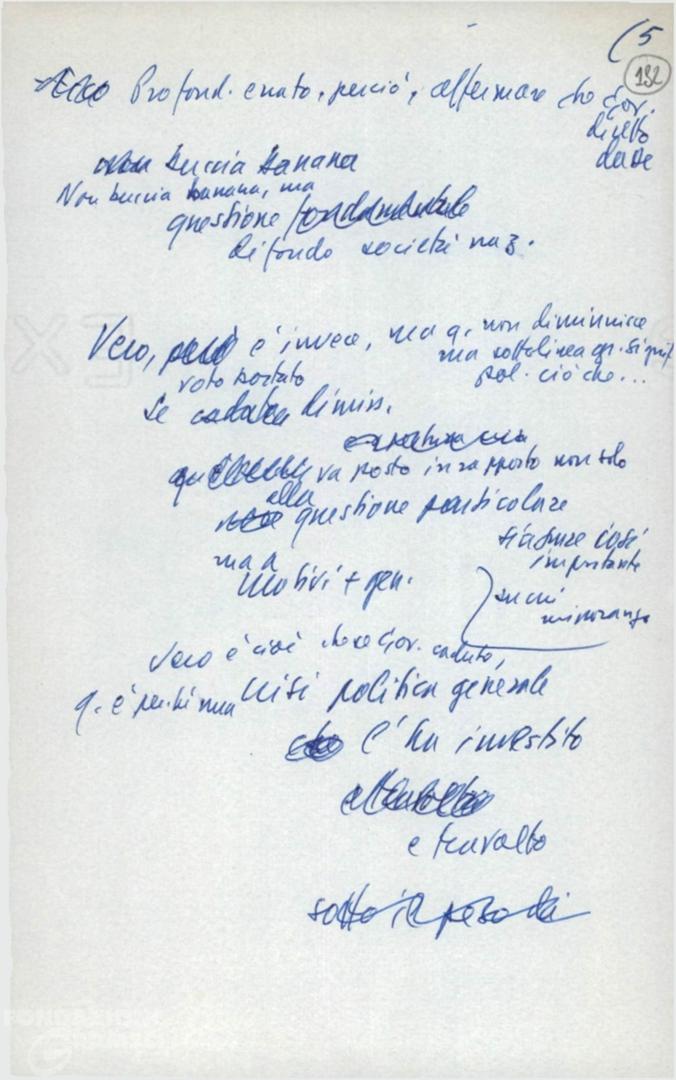 (5
132
Profond. errato, perciò, affermare che Gov.
diretto
da DC
non buccia banana
Non buccia banana, ma
questione fondamentale
di fondo società naz.
Vero, però è invece, ma q. non diminuisce
ma sottolinea gr. signif
pol. ciò che...
voto portato
Se caduta dimis.
va posto in rapporto non solo
alla
questione particolare
ma a
motivi + gen.
importante
su cui
minoranza
Vero è cioè che se Gov. caduto,
q. è perché una crisi politica generale
l'ha investito
e travolto
sotto il peso di
FONDAZIONE
GRAMSCI